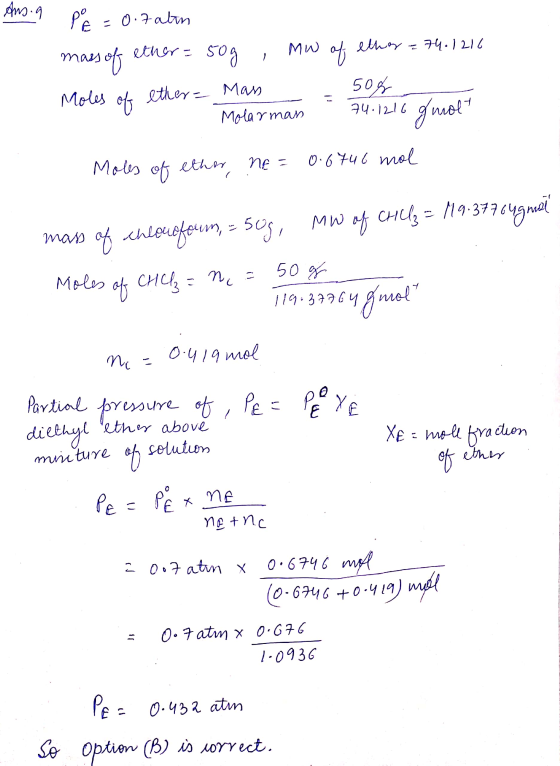 Ans.9 P°E = 0.7 atm
mass of ether = 50g , MW of ether = 74.1216
Moles of ether = Mass / Molar mass = 50g / 74.1216 g mol⁻¹
Moles of ether, nE = 0.6746 mol
mass of chloroform, = 50g, MW of CHCl3 = 119.37764 g mol⁻¹
Moles of CHCl3 = nc = 50 g / 119.37764 g mol⁻¹
nc = 0.419 mol
Partial pressure of , PE = P°E XE
diethyl ether above
mixture of solution
XE = mole fraction
of ether
PE = P°E × nE / nE + nc
= 0.7 atm × 0.6746 mol / (0.6746 + 0.419) mol
= 0.7 atm × 0.676 / 1.0936
PE = 0.432 atm
So option (B) is correct.